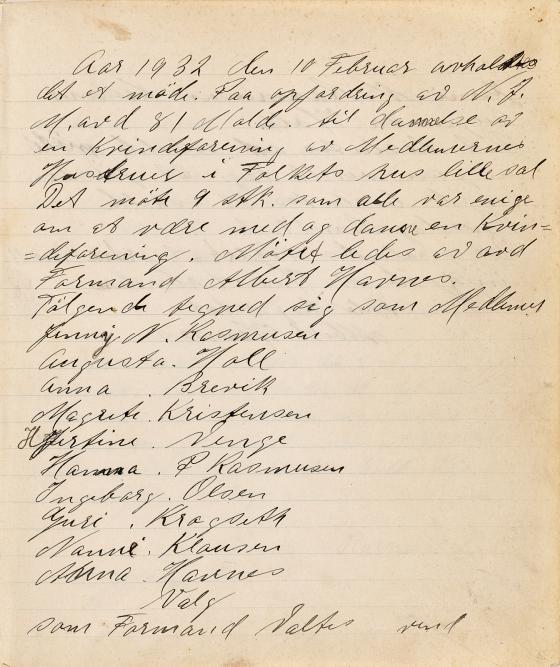 Aar 1932 den 10 Februar avholdtes
det et møde. Paa opfordring av N. J.
M. avd 81 Molde. til dannelse av
en Kvindeforening av Medlemernes
Hustruer i Folkets hus lille sal
Det møtte 9 stk. som alle var enige
om at være med og danne en Kvin=
=deforening. Møtet ledes av avd
Formand Albert Havnes.
Følgende tegned sig som Medlemer
Jenny N. Rasmusen
Augusta. Holl
Anna . Brevik
Magrete. Kristensen
Hjertine . Venge
Hanna . P Rasmusen
Ingeborg. Olsen
Guri . Krogseth
Nanni. Klausen
Anna . Havnes
Valg
som Formand Valtes vend